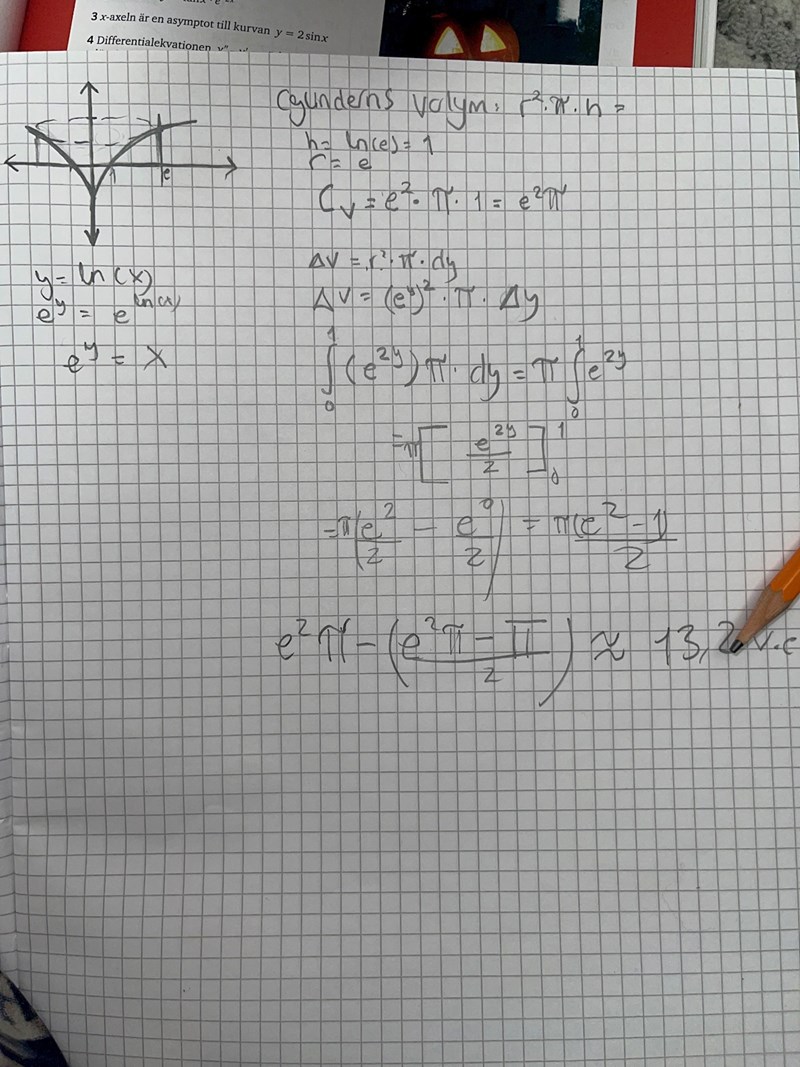 3 x-axeln är en asymptot till kurvan y = 2 sin x
4 Differentialekvationen
Cylinderns volym: r²·π·h =
h = ln(e) = 1
r = e
C_v = e²·π·1 = e²π
1 e
ΔV = r²·π·dy
y = ln(x)
ΔV = (e^y)²·π·Δy
e^y = e^ln(x)
e^y = x
∫₀¹ (e^2y) π·dy = π ∫₀¹ e^2y
= π [e^2y / 2]₀¹
= π (e²/2 - e⁰/2) = π(e² - 1)/2
e²π - ((e²π - π)/2) ≈ 13,2 v.e